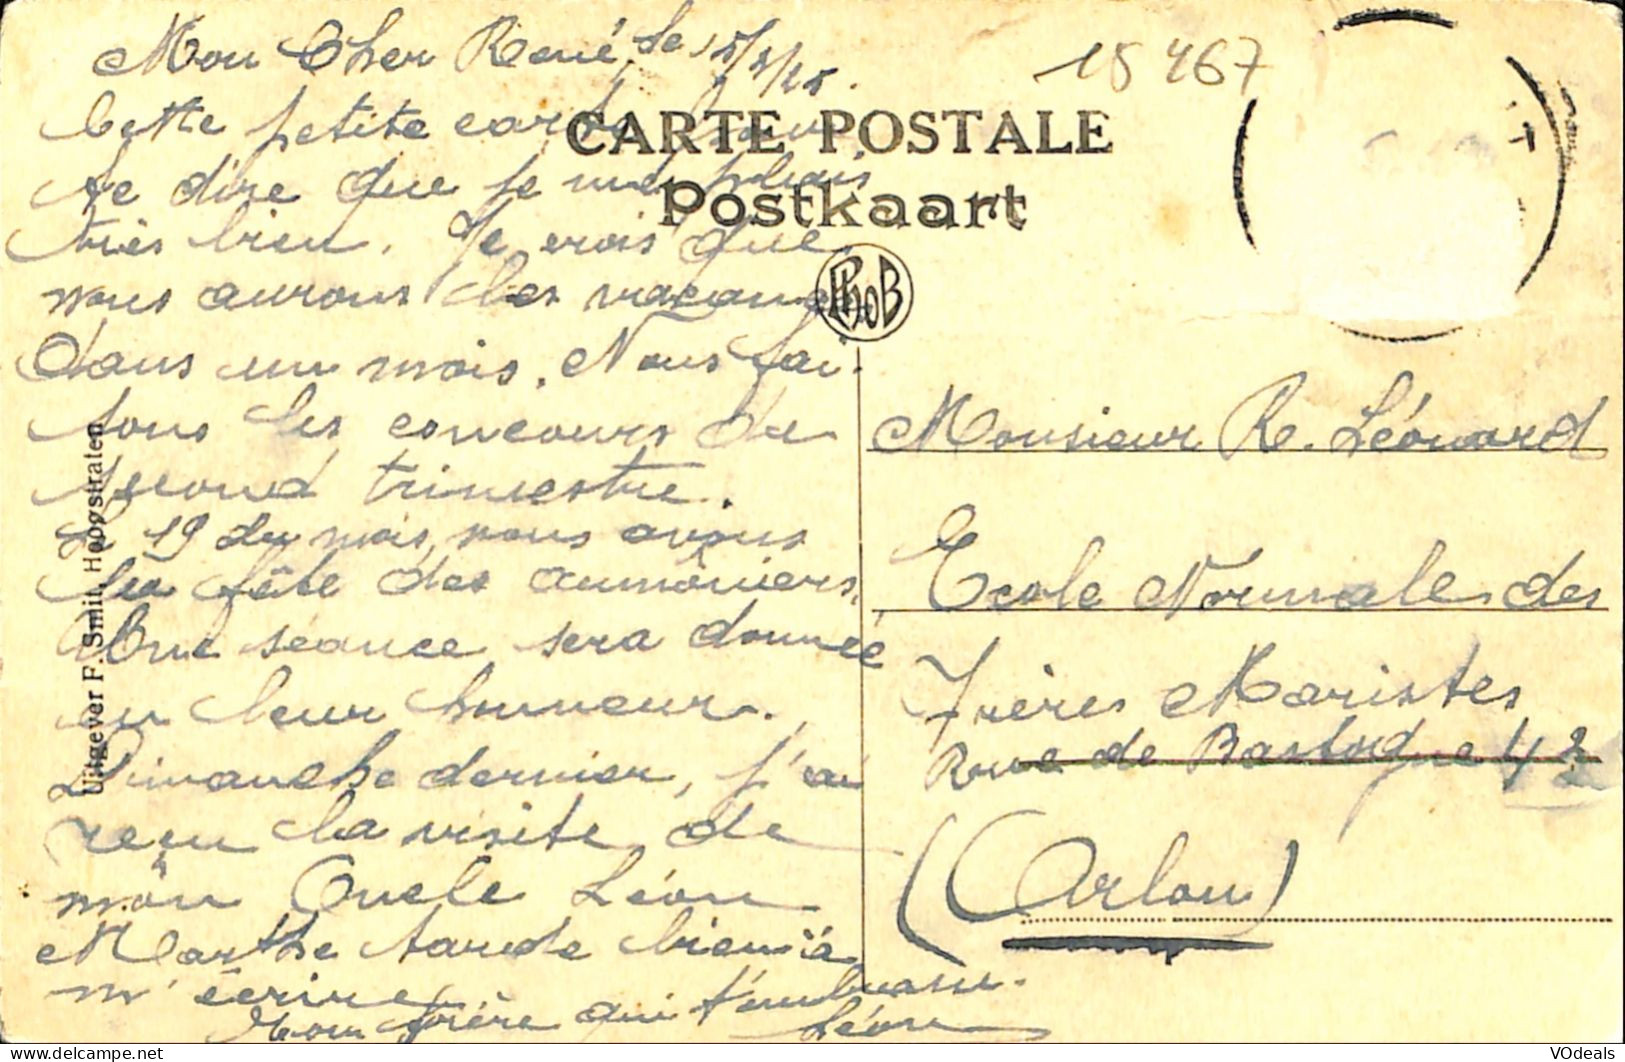 Mon Cher René, le 15/3/25.
15 467
Cette petite carte pour
CARTE POSTALE
te dire que je me plais
Postkaart
très bien. Je crois que
nous aurons les vacances
PhoB
dans un mois. Nous fai-
sons les concours du
second trimestre.
Le 19 du mois, nous avons
la fête des aumôniers.
Une séance sera donnée
en leur honneur.
Dimanche dernier, j'ai
reçu la visite de
mon Oncle Léon
Marthe tarde bien à
m'écrire
Ton frère qui t'embrasse.
Léon
Uitgever F. Smit, Hoogstraten
Monsieur R. Léonard
Ecole Normale des
Frères Maristes
Rue de Bastogne 42
(Arlon)
VOdeals